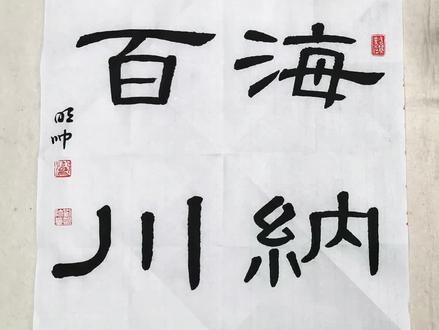 海納
百川
明帅